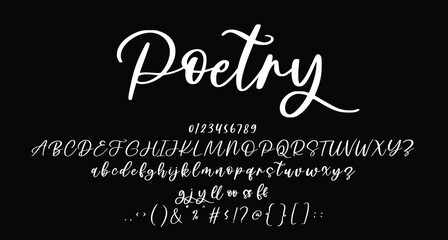 Poetry
0123456789
ABCDEFGHIJKLMNOPQRSTUVWXYZ
abcdefghijklmnopqrstuvwxyz
gjy ll oo ss ff
.,‘’()&*%^#$!?@{}[]::